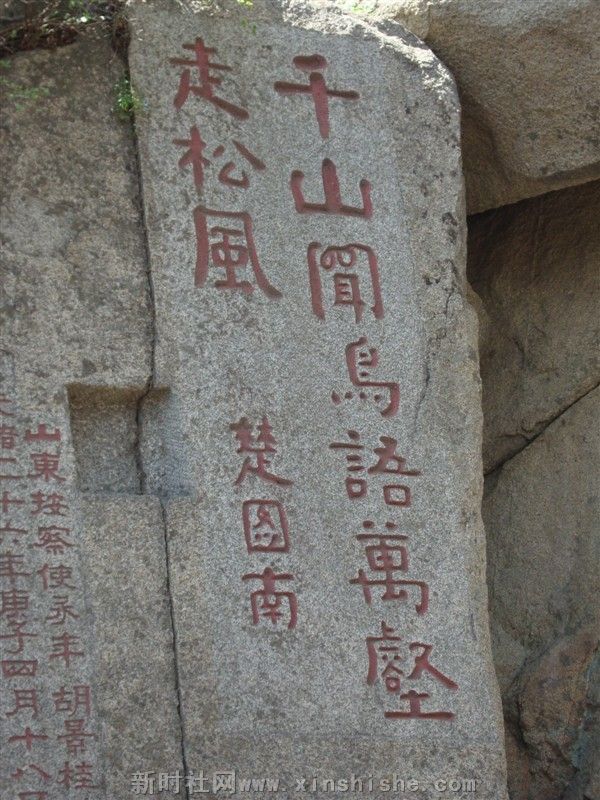 千山聞鳥語萬壑
走松風
楚图南
山東按察使永年胡景桂
二十六年庚子四月十八
新时社网www.xinshishe.com